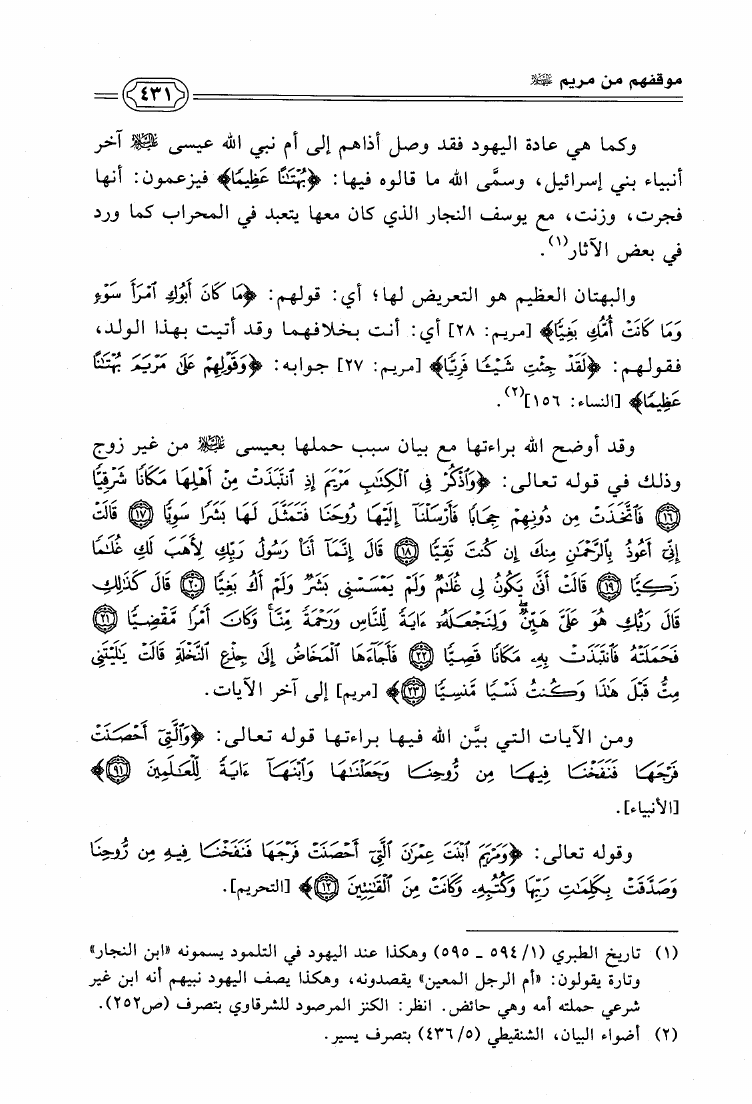 موقفهم من مريم ﷺ
٤٣١
وكما هي عادة اليهود فقد وصل أذاهم إلى أم نبي الله عيسى ﷺ آخر
أنبياء بني إسرائيل، وسمَّى الله ما قالوه فيها: ﴿بُهْتَٰنًا عَظِيمًا﴾ فيزعمون: أنها
فجرت، وزنت، مع يوسف النجار الذي كان معها يتعبد في المحراب كما ورد
في بعض الآثار(١).
والبهتان العظيم هو التعريض لها؛ أي: قولهم: ﴿مَا كَانَ أَبُوكِ ٱمْرَأَ سَوْءٍ
وَمَا كَانَتْ أُمُّكِ بَغِيًّا﴾ [مريم: ٢٨] أي: أنت بخلافهما وقد أتيت بهذا الولد،
فقولهم: ﴿لَقَدْ جِئْتِ شَيْـًٔا فَرِيًّا﴾ [مريم: ٢٧] جوابه: ﴿وَقَوْلِهِمْ عَلَىٰ مَرْيَمَ بُهْتَٰنًا
عَظِيمًا﴾ [النساء: ١٥٦](٢).
وقد أوضح الله براءتها مع بيان سبب حملها بعيسى ﷺ من غير زوج
وذلك في قوله تعالى: ﴿وَٱذْكُرْ فِى ٱلْكِتَٰبِ مَرْيَمَ إِذِ ٱنتَبَذَتْ مِنْ أَهْلِهَا مَكَانًا شَرْقِيًّا
١٦ فَٱتَّخَذَتْ مِن دُونِهِمْ حِجَابًا فَأَرْسَلْنَآ إِلَيْهَا رُوحَنَا فَتَمَثَّلَ لَهَا بَشَرًا سَوِيًّا ١٧ قَالَتْ
إِنِّىٓ أَعُوذُ بِٱلرَّحْمَٰنِ مِنكَ إِن كُنتَ تَقِيًّا ١٨ قَالَ إِنَّمَآ أَنَا۠ رَسُولُ رَبِّكِ لِأَهَبَ لَكِ غُلَٰمًا
زَكِيًّا ١٩ قَالَتْ أَنَّىٰ يَكُونُ لِى غُلَٰمٌ وَلَمْ يَمْسَسْنِى بَشَرٌ وَلَمْ أَكُ بَغِيًّا ٢٠ قَالَ كَذَٰلِكِ
قَالَ رَبُّكِ هُوَ عَلَىَّ هَيِّنٌ ۖ وَلِنَجْعَلَهُۥٓ ءَايَةً لِّلنَّاسِ وَرَحْمَةً مِّنَّا ۚ وَكَانَ أَمْرًا مَّقْضِيًّا ٢١
فَحَمَلَتْهُ فَٱنتَبَذَتْ بِهِۦ مَكَانًا قَصِيًّا ٢٢ فَأَجَآءَهَا ٱلْمَخَاضُ إِلَىٰ جِذْعِ ٱلنَّخْلَةِ قَالَتْ يَٰلَيْتَنِى
مِتُّ قَبْلَ هَٰذَا وَكُنتُ نَسْيًا مَّنسِيًّا ٢٣﴾ [مريم] إلى آخر الآيات.
ومن الآيات التي بيَّن الله فيها براءتها قوله تعالى: ﴿وَٱلَّتِىٓ أَحْصَنَتْ
فَرْجَهَا فَنَفَخْنَا فِيهَا مِن رُّوحِنَا وَجَعَلْنَٰهَا وَٱبْنَهَآ ءَايَةً لِّلْعَٰلَمِينَ ٩١﴾
[الأنبياء].
وقوله تعالى: ﴿وَمَرْيَمَ ٱبْنَتَ عِمْرَٰنَ ٱلَّتِىٓ أَحْصَنَتْ فَرْجَهَا فَنَفَخْنَا فِيهِ مِن رُّوحِنَا
وَصَدَّقَتْ بِكَلِمَٰتِ رَبِّهَا وَكُتُبِهِۦ وَكَانَتْ مِنَ ٱلْقَٰنِتِينَ ١٢﴾ [التحريم].
(١) تاريخ الطبري (١/ ٥٩٤ ـ ٥٩٥) وهكذا عند اليهود في التلمود يسمونه «ابن النجار»
وتارة يقولون: «أم الرجل المعين» يقصدونه، وهكذا يصف اليهود نبيهم أنه ابن غير
شرعي حملته أمه وهي حائض. انظر: الكنز المرصود للشرقاوي بتصرف (ص٢٥٢).
(٢) أضواء البيان، الشنقيطي (٥/ ٤٣٦) بتصرف يسير.